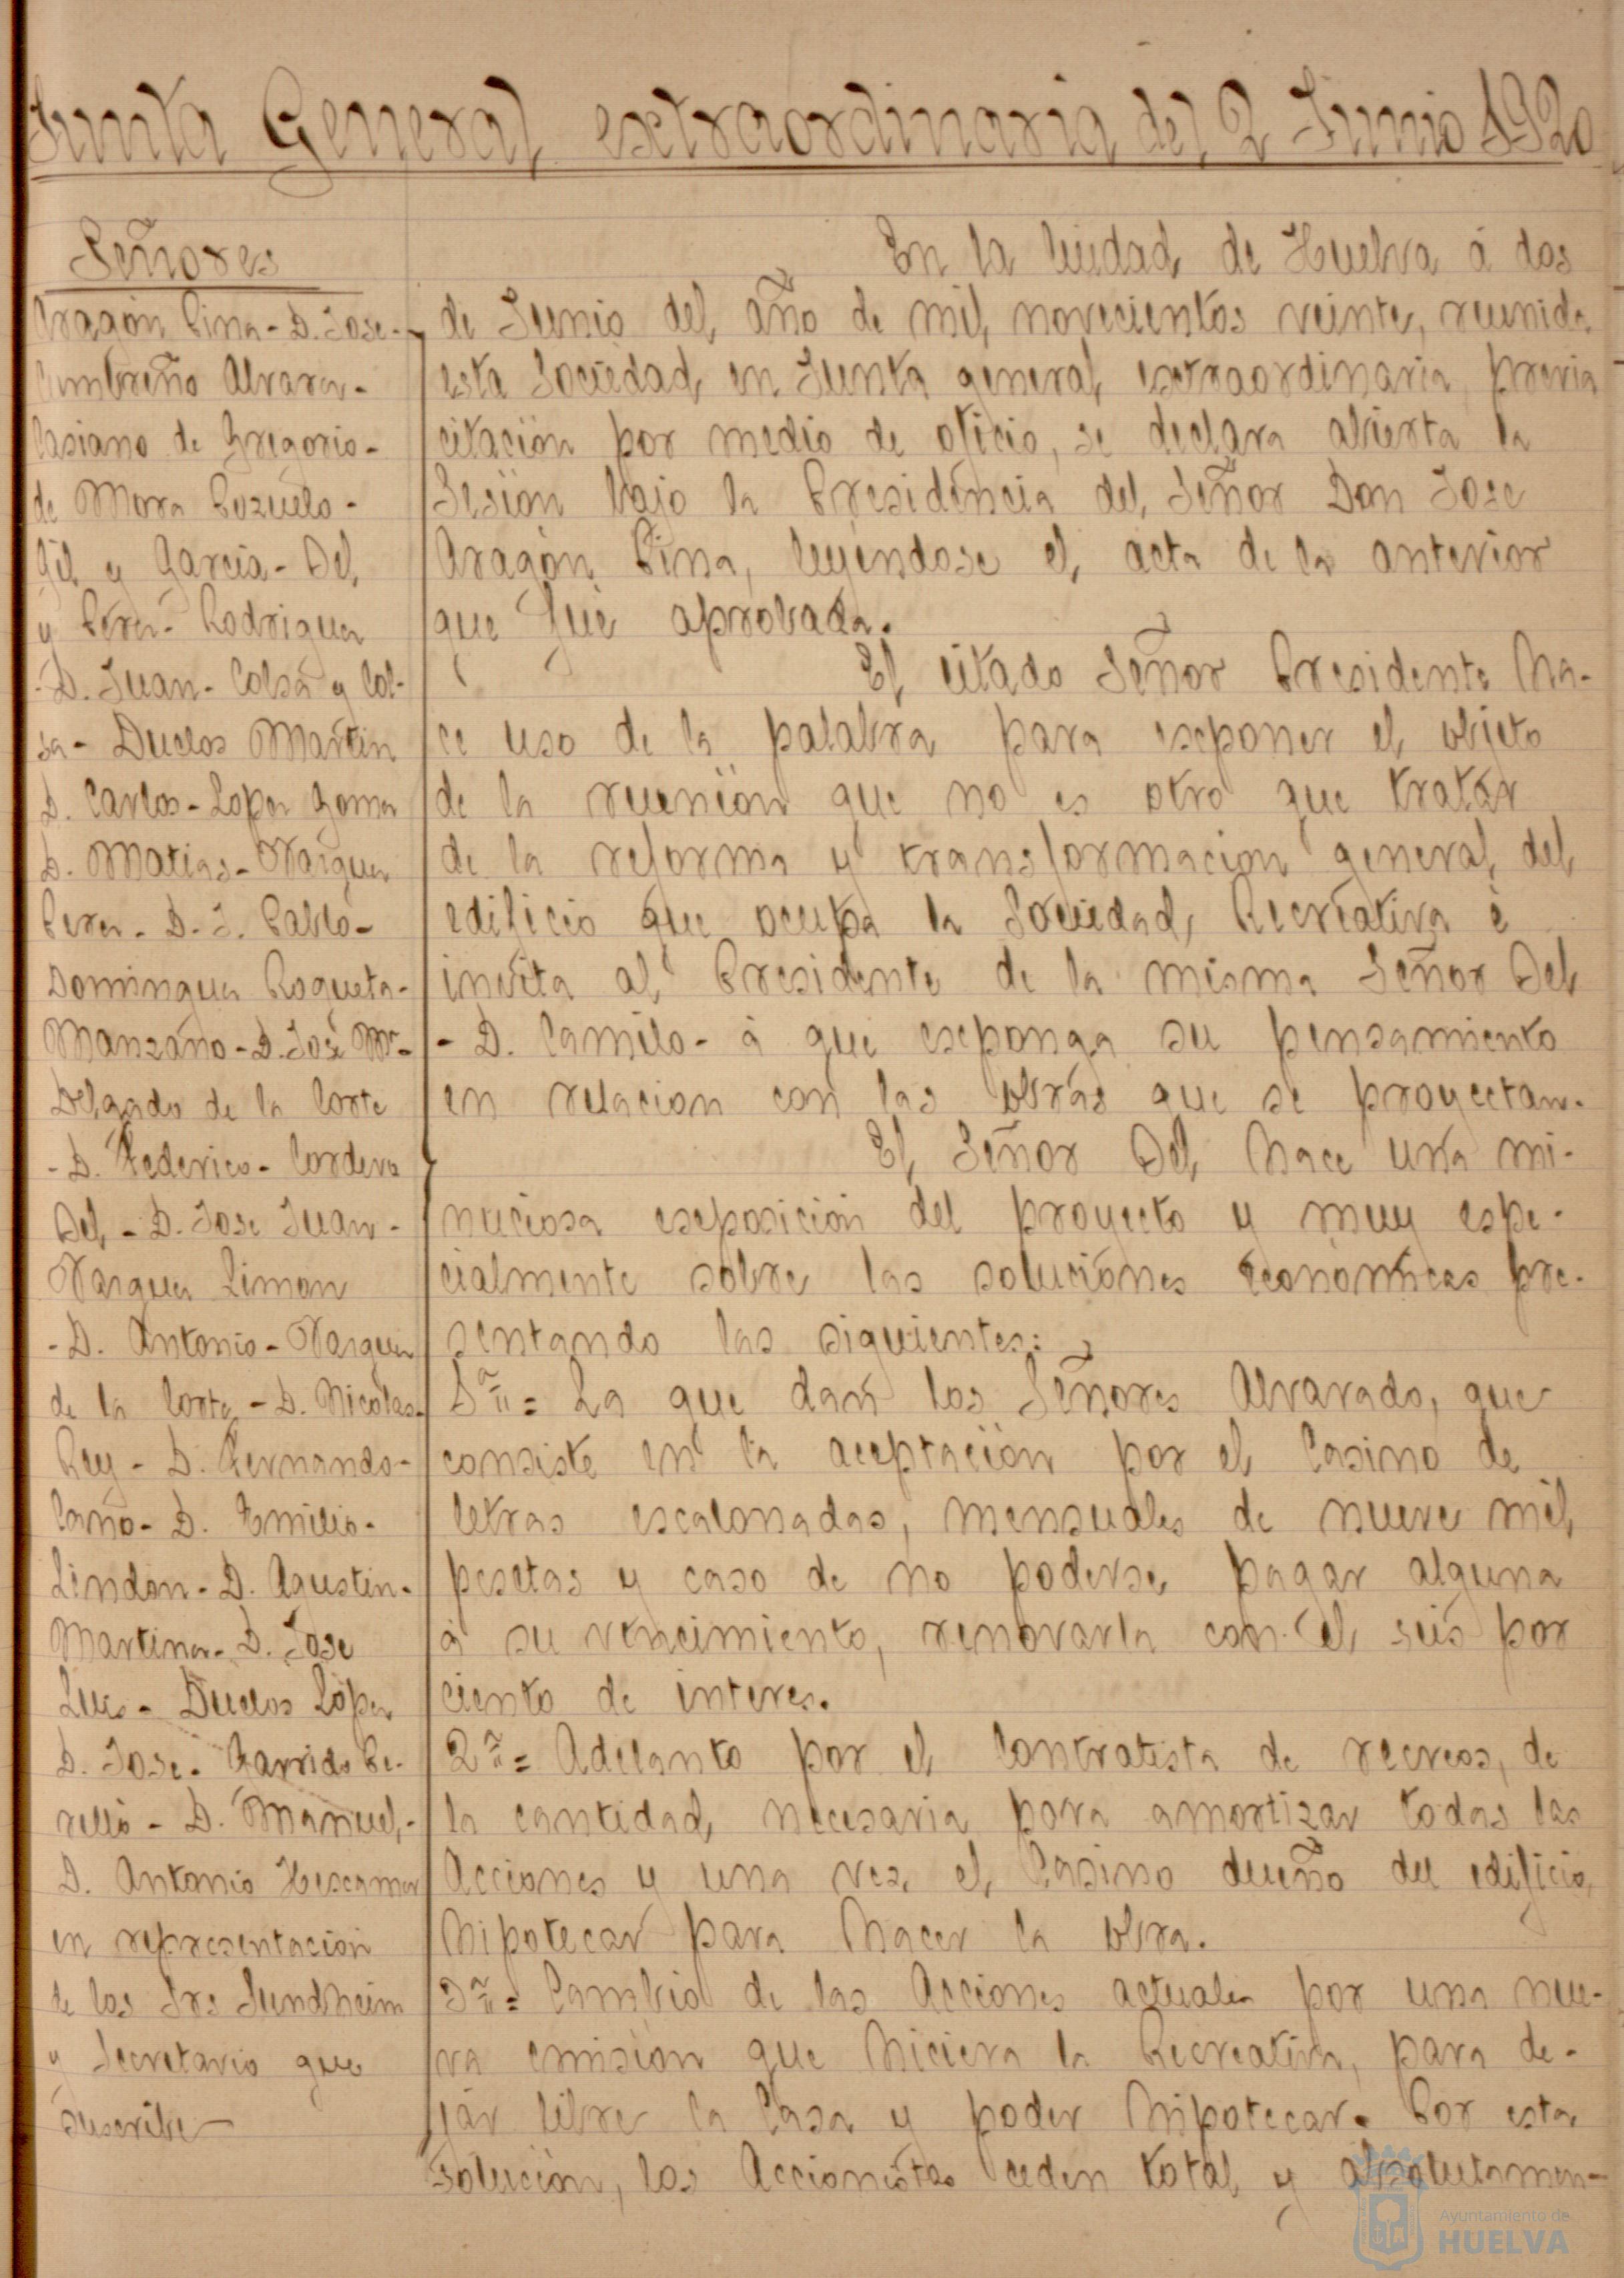 Junta General extraordinaria del 2 Junio 1920
Señores
Aragón Pina - D. Jose -
Cumbreño Alvarez -
Casiano de Gregorio -
de Mora Pozuelo -
Gil y Garcia - Del
y Perez - Rodriguez
- D. Juan - Colsa y Col-
sa - Duclos Martin
D. Carlos - Lopez Gomez
D. Matias - Vazquez
Perez - D. J. Pablo -
Dominguez Roqueta -
Manzano - D. José Mª -
Delgado de la Corte
- D. Federico - Cordero
Del - D. Jose Juan -
Vazquez Limon
- D. Antonio - Vazquez
de la Corte - D. Nicolas -
Rey - D. Fernando -
Caño - D. Emilio -
Lindon - D. Agustin -
Martinez - D. Jose
Luis - Duclos López
D. Jose - Garrido Pe-
rello - D. Manuel -
D. Antonio
en representación
de los Srs Sundheim
y Secretario que
suscribe
En la Ciudad de Huelva á dos
de Junio del año de mil novecientos veinte, reunida
esta Sociedad en Junta general extraordinaria previa
citación por medio de oficio, se declara abierta la
Sesión bajo la Presidencia del Señor Don Jose
Aragón Pina, leyéndose el acta de la anterior
que fué aprobada.
El citado Señor Presidente ha-
ce uso de la palabra para exponer el objeto
de la reunión que no es otro que tratar
de la reforma y transformación general del
edificio que ocupa la Sociedad Recreativa é
invita al Presidente de la misma Señor Del
- D. Camilo - á que exponga su pensamiento
en relacion con las obras que se proyectan.
El Señor Del hace una mi-
nuciosa exposición del proyecto y muy espe-
cialmente sobre las soluciones económicas pre-
sentando las siguientes:
1ª = La que dan los Señores Alvarado, que
consiste en la aceptación por el Casino de
letras escalonadas, mensuales de nueve mil
pesetas y caso de no poderse pagar alguna
á su vencimiento, renovarla con el seis por
ciento de interes.
2ª = Adelanto por el Contratista de recreos, de
la cantidad necesaria para amortizar todas las
Acciones y una vez el Casino dueño del edificio,
hipotecar para hacer la obra.
3ª = Cambio de las Acciones actuales por una nue-
va emision que hiciera la Recreativa, para de-
jar libre la Casa y poder hipotecar. Por esta
solución, los Accionistas ceden total y absolutamen-
Ayuntamiento de
HUELVA